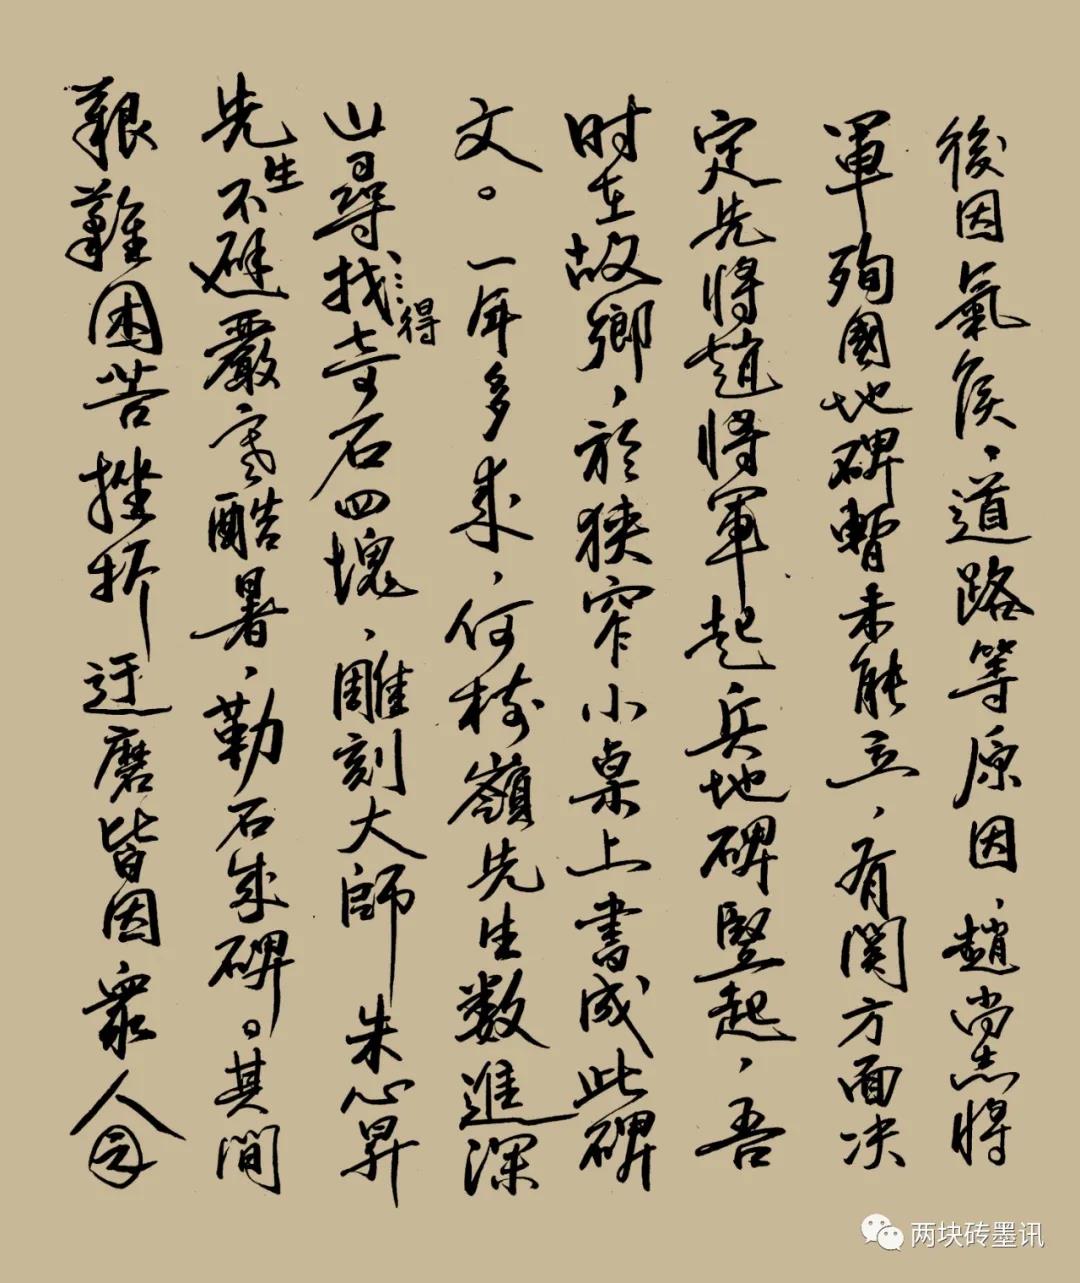 後因氣候、道路等原因,趙尚志將
軍殉國地碑暫未能立,有関方面决
定先將趙將軍起兵地碑豎起,吾
时在故鄉,於狹窄小桌上書成此碑
文。一年多来,何嶺先生数進深
山尋找……得奇石四塊,雕刻大師朱心昇
先生不避嚴寒酷暑,勒石成碑。其間
艱難困苦挫折迂磨皆因眾人
两块砖墨讯